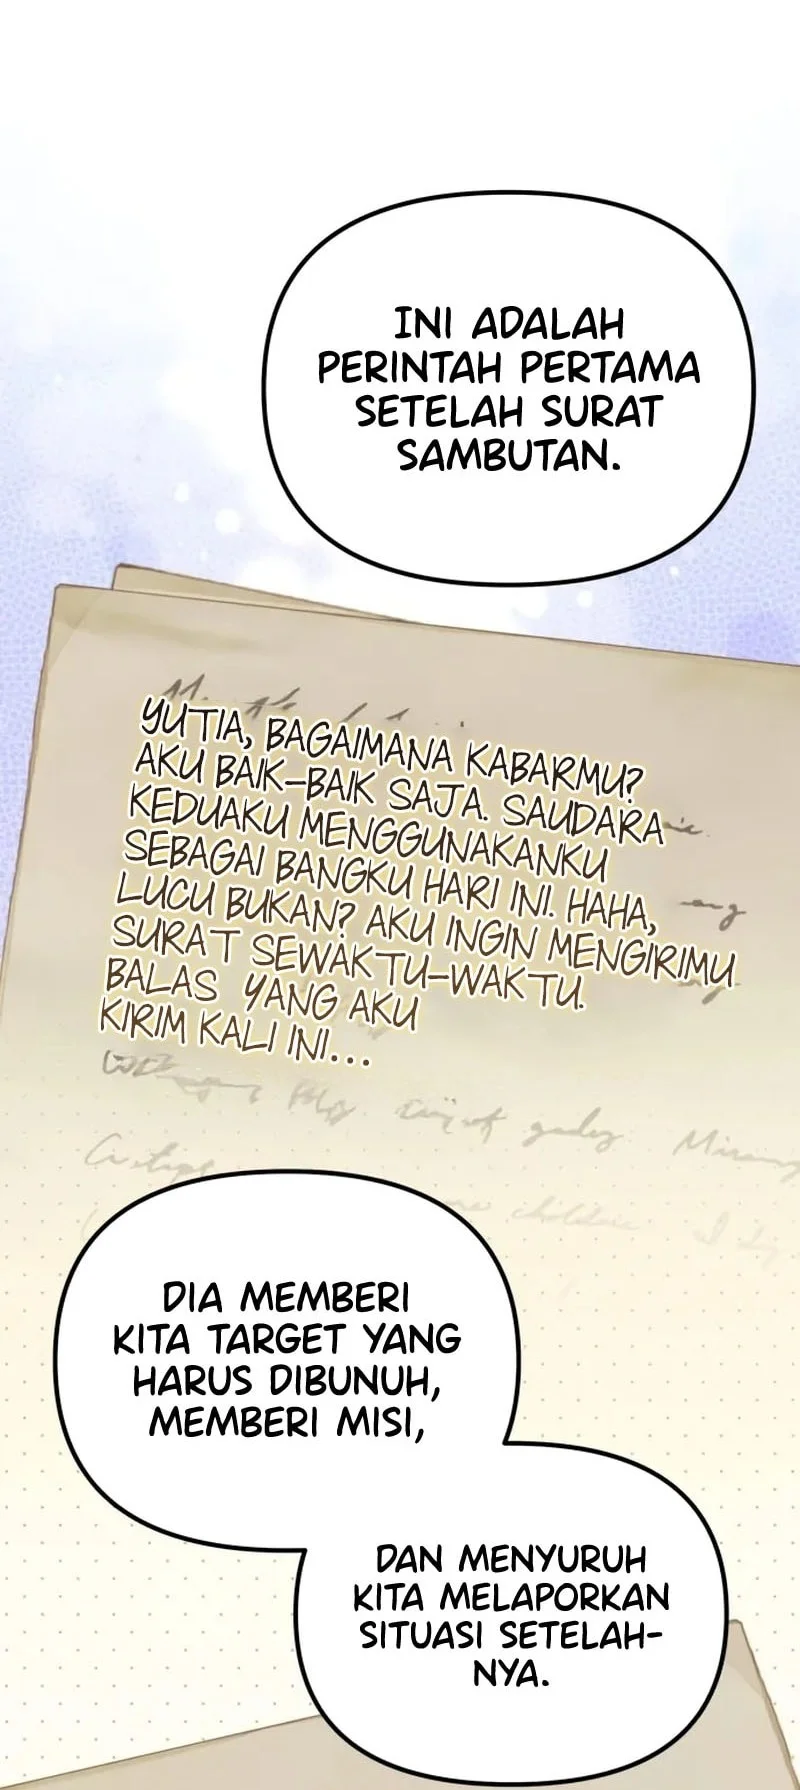 INI ADALAH
PERINTAH PERTAMA
SETELAH SURAT
SAMBUTAN.
YUTIA, BAGAIMANA KABARMU?
AKU BAIK-BAIK SAJA. SAUDARA
KEDUAKU MENGGUNAKANKU
SEBAGAI BANGKU HARI INI. HAHA,
LUCU BUKAN? AKU INGIN MENGIRIMU
SURAT SEWAKTU-WAKTU.
BALAS YANG AKU
KIRIM KALI INI...
DIA MEMBERI
KITA TARGET YANG
HARUS DIBUNUH,
MEMBERI MISI,
DAN MENYURUH
KITA MELAPORKAN
SITUASI SETELAH-
NYA.